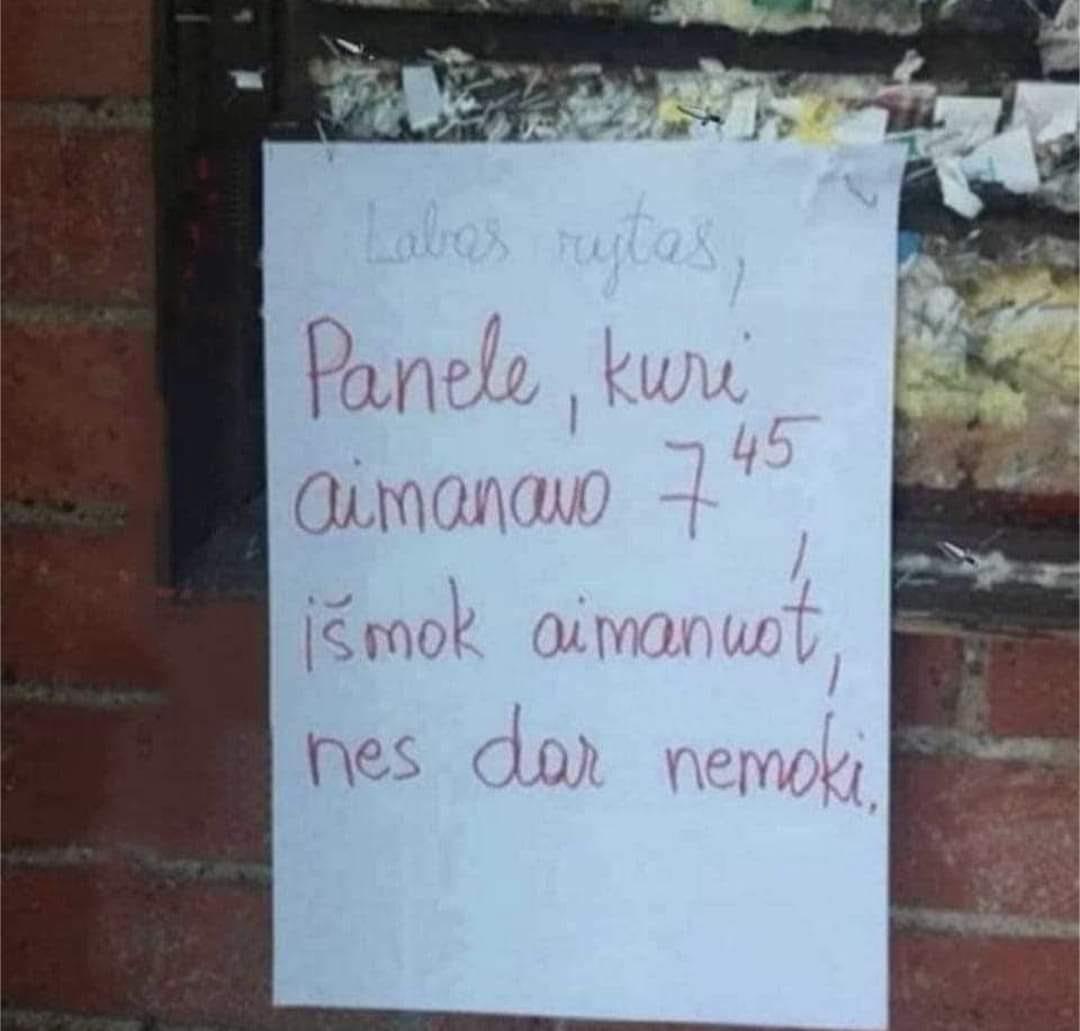 Labas rytas,
Panele, kuri
aimanavo 7 45,
išmok aimanuot,
nes dar nemoki.